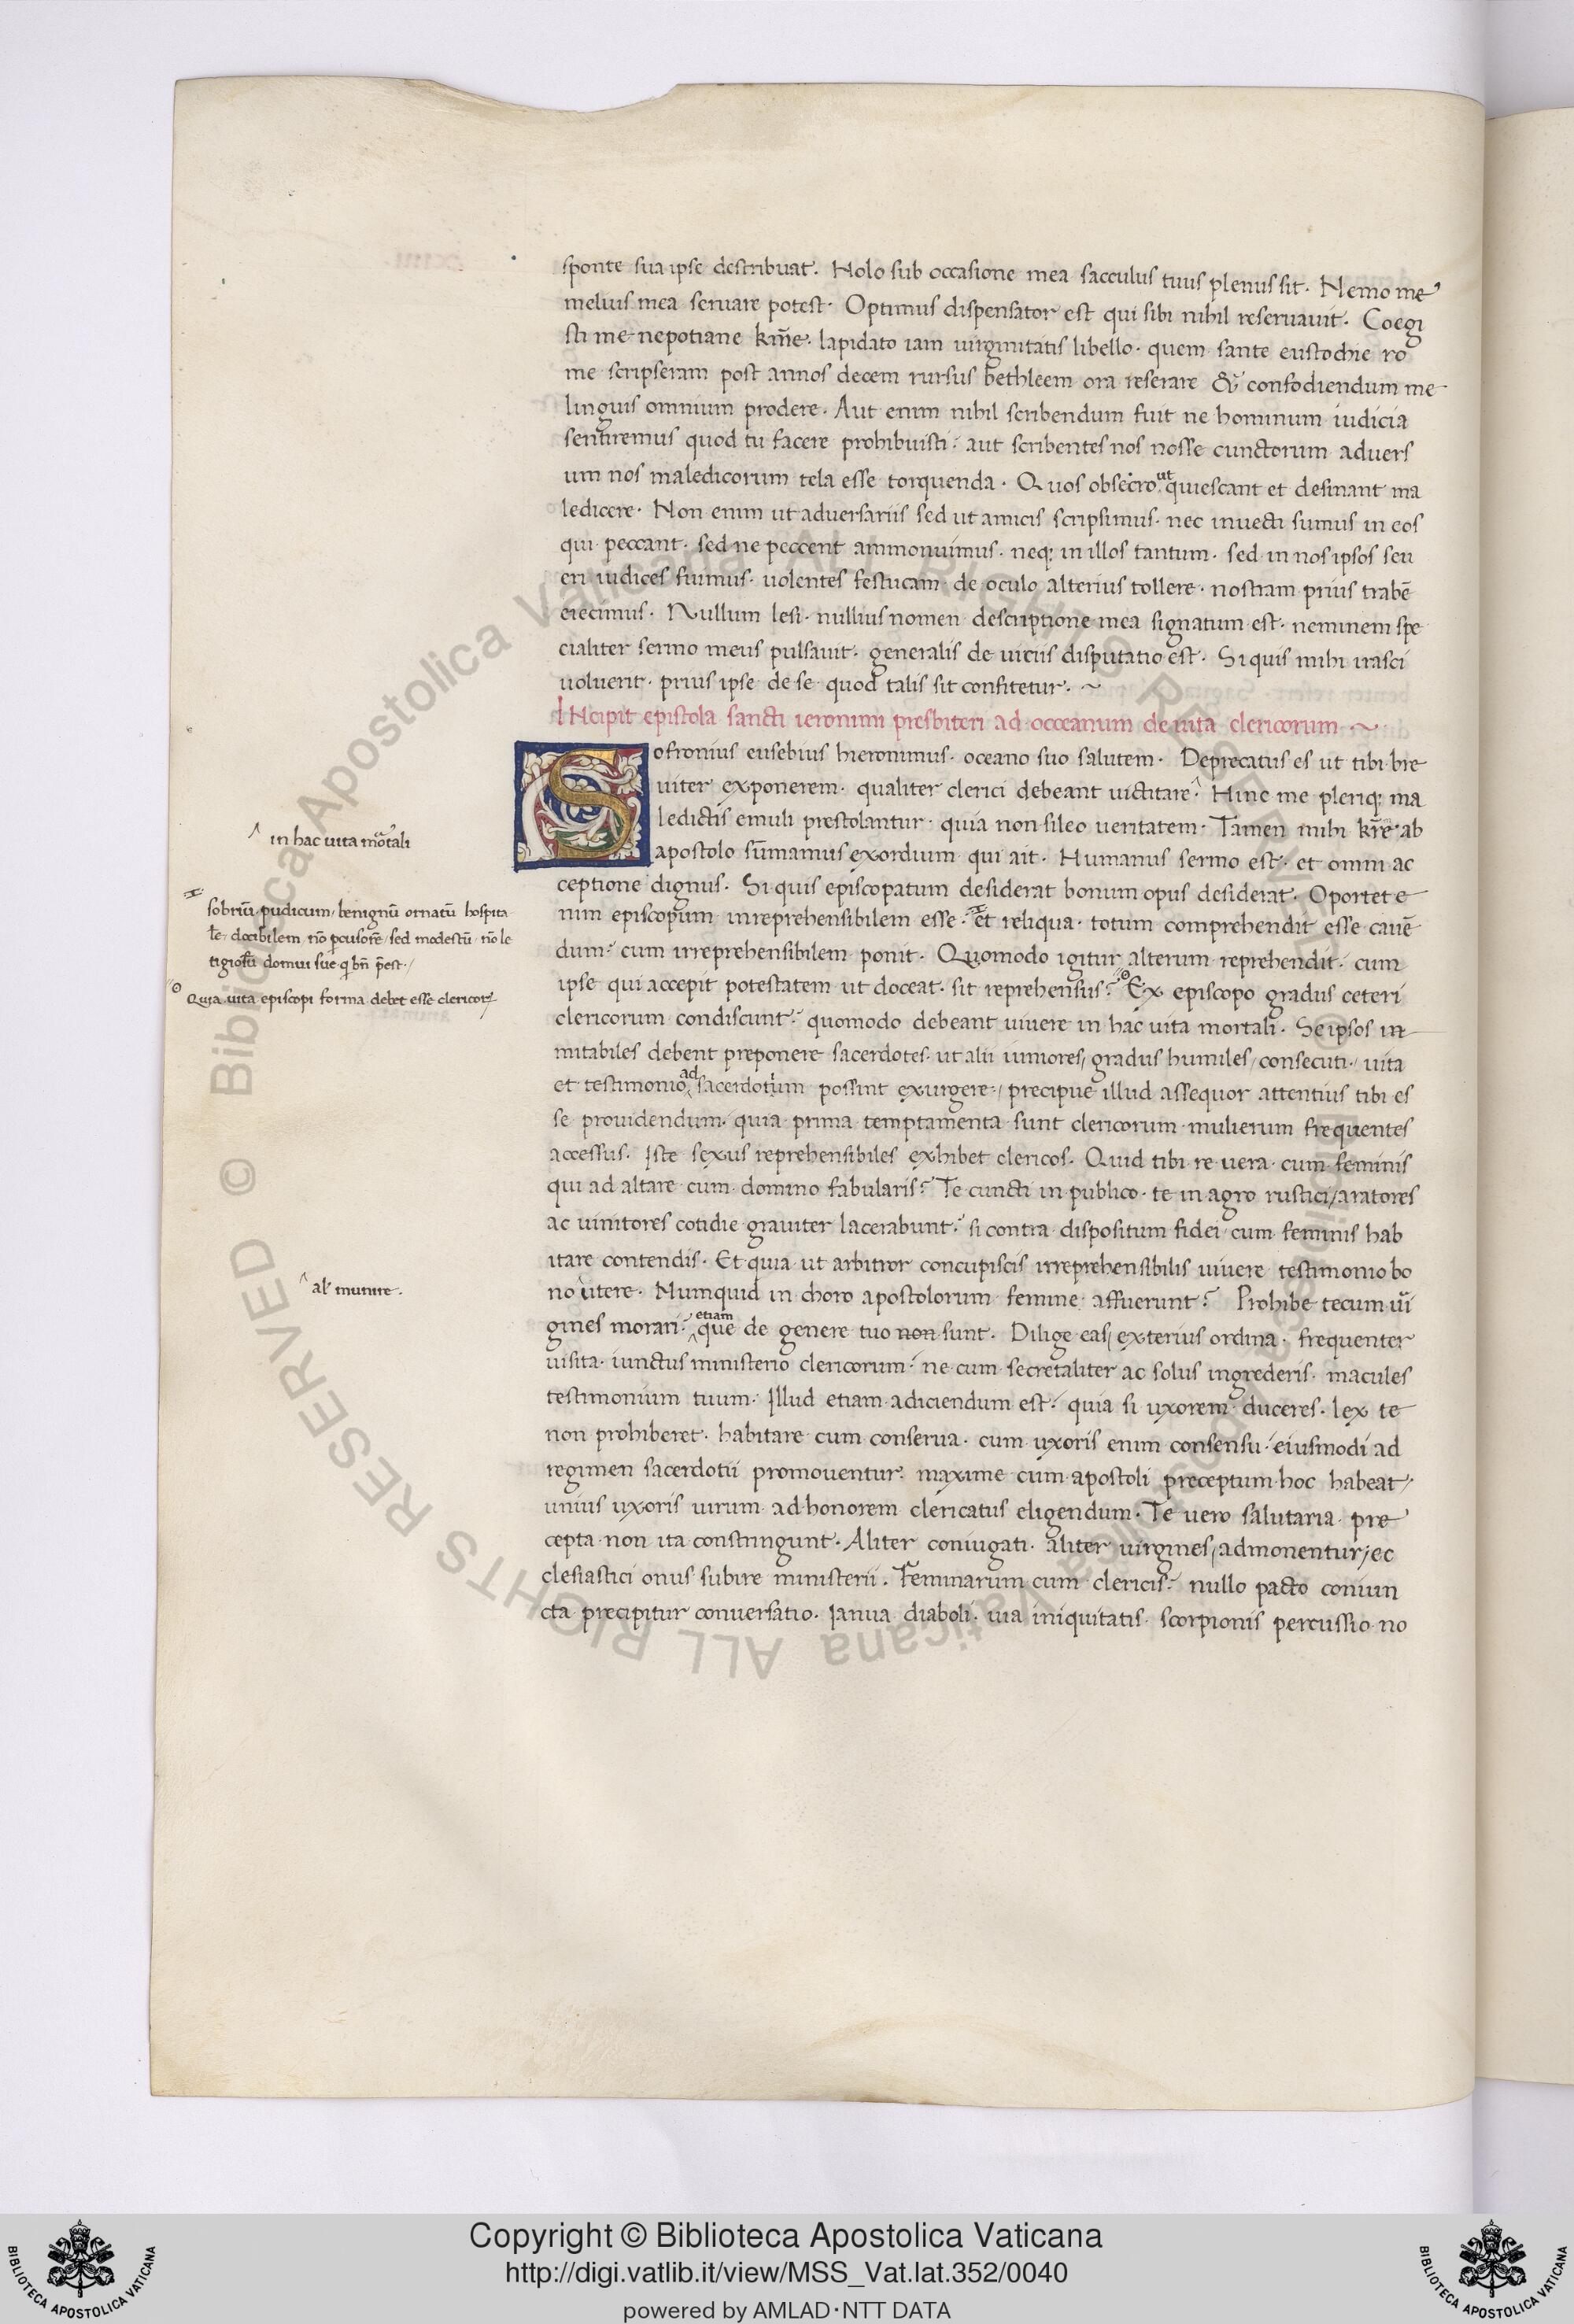 sponte sua ipse describuat. Nolo sub occasione mea sacculus tuus plenus sit. Nemo me
melius mea seruare potest. Optimus dispensator est qui sibi nihil reseruauit. Coegi
sti me nepotiane km̄e. lapidato iam uirginitatis libello. quem sante eustochie ro
me scripseram post annos decem rursus bethleem ora reserare & confodiendum me
linguis omnium prodere. Aut enim nihil scribendum fuit ne hominum iudicia
sentiremus quod tu facere prohibuisti: aut scribentes nos nosse cunctorum aduers
um nos maledicorum tela esse torquenda. Quos obsecro ut quiescant et desinant ma
ledicere. Non enim ut aduersariis sed ut amicis scripsimus. nec inuecti sumus in eos
qui peccant. sed ne peccent ammonuimus. neq; in illos tantum. sed in nos ipsos seu
eri iudices fuimus. uolentes festucam de oculo alterius tollere. nostram prius trabē
eiecimus. Nullum lesi. nullius nomen descriptione mea signatum est. neminem spe
cialiter sermo meus pulsauit. generalis de uiciis disputatio est. Si quis mihi irasci
uoluerit. prius ipse de se quod talis sit confitetur. ~
INcipit epistola sancti ieronimi presbiteri ad occeanum de uita clericorum ~
Sofronius eusebius hieronimus. oceano suo salutem. Deprecatus es ut tibi bre
uiter exponerem. qualiter clerici debeant uictitare. Hinc me pleriq; ma
ledictis emuli prestolantur. quia non sileo ueritatem. Tamen mihi kr̄e ab
apostolo sūmamus exordium qui ait. Humanus sermo est. et omni ac
ceptione dignus. Si quis episcopatum desiderat bonum opus desiderat. Oportet e
nim episcopum inreprehensibilem esse. et reliqua. totum comprehendit esse cauē
dum: cum irreprehensibilem ponit. Quomodo igitur alterum reprehendit. cum
ipse qui accepit potestatem ut doceat. sit reprehensus? Ex episcopo gradus ceteri
clericorum condiscunt: quomodo debeant uiuere in hac uita mortali. Se ipsos in
mitabiles debent preponere sacerdotes. ut alii iuniores/ gradus humiles/ consecuti/ uita
et testimonio ad sacerdotium possint exurgere/ precipue illud assequor attentius tibi es
se prouidendum. quia prima temptamenta sunt clericorum mulierum frequentes
accessus. Iste sexus reprehensibiles exhibet clericos. Quid tibi re uera cum feminis
qui ad altare cum domino fabularis? Te cuncti in publico. te in agro rustici/ aratores
ac uinitores cotidie grauiter lacerabunt: si contra dispositum fidei cum feminis hab
itare contendis. Et quia ut arbitror concupiscis irreprehensibilis uiuere testimonio bo
no utere. Numquid in choro apostolorum femine affuerunt? Prohibe tecum uir̄
gines morari: etiam que de genere tuo non sunt. Dilige eas/ exterius ordina. frequenter
uisita. iunctus ministerio clericorum: ne cum secretaliter ac solus ingrederis. macules
testimonium tuum. Illud etiam adiciendum est: quia si uxorem duceres. lex te
non prohiberet. habitare cum conserua. cum uxoris enim consensu. eiusmodi ad
regimen sacerdotii promouentur. maxime cum apostoli preceptum hoc habeat/
unius uxoris uirum ad honorem clericatus eligendum. Te uero salutaria pre
cepta non ita constringunt. Aliter coniugati. aliter uirgines/ admonentur/ ec
clesiastici onus subire ministerii. Feminarum cum clericis: nullo pacto coniun
cta precipitur conuersatio. Ianua diaboli. uia iniquitatis. scorpionis percussio no
in hac uita mortali
sobriū/ pudicum/ benignū ornatū hospita
lē/ docibilem/ nō pcusorē/ sed modestū/ nō le
tigiosū domui sue q bn̄ p̄est./
Quia uita episcopi forma debet esse clericoꝝ
al' munire.
Copyright © Biblioteca Apostolica Vaticana
http://digi.vatlib.it/view/MSS_Vat.lat.352/0040
powered by AMLAD·NTT DATA
BIBLIOTECA APOSTOLICA VATICANA
BIBLIOTECA APOSTOLICA VATICANA
© Biblioteca Apostolica Vaticana ALL RIGHTS RESERVED
© Biblioteca Apostolica Vaticana ALL RIGHTS RESERVED